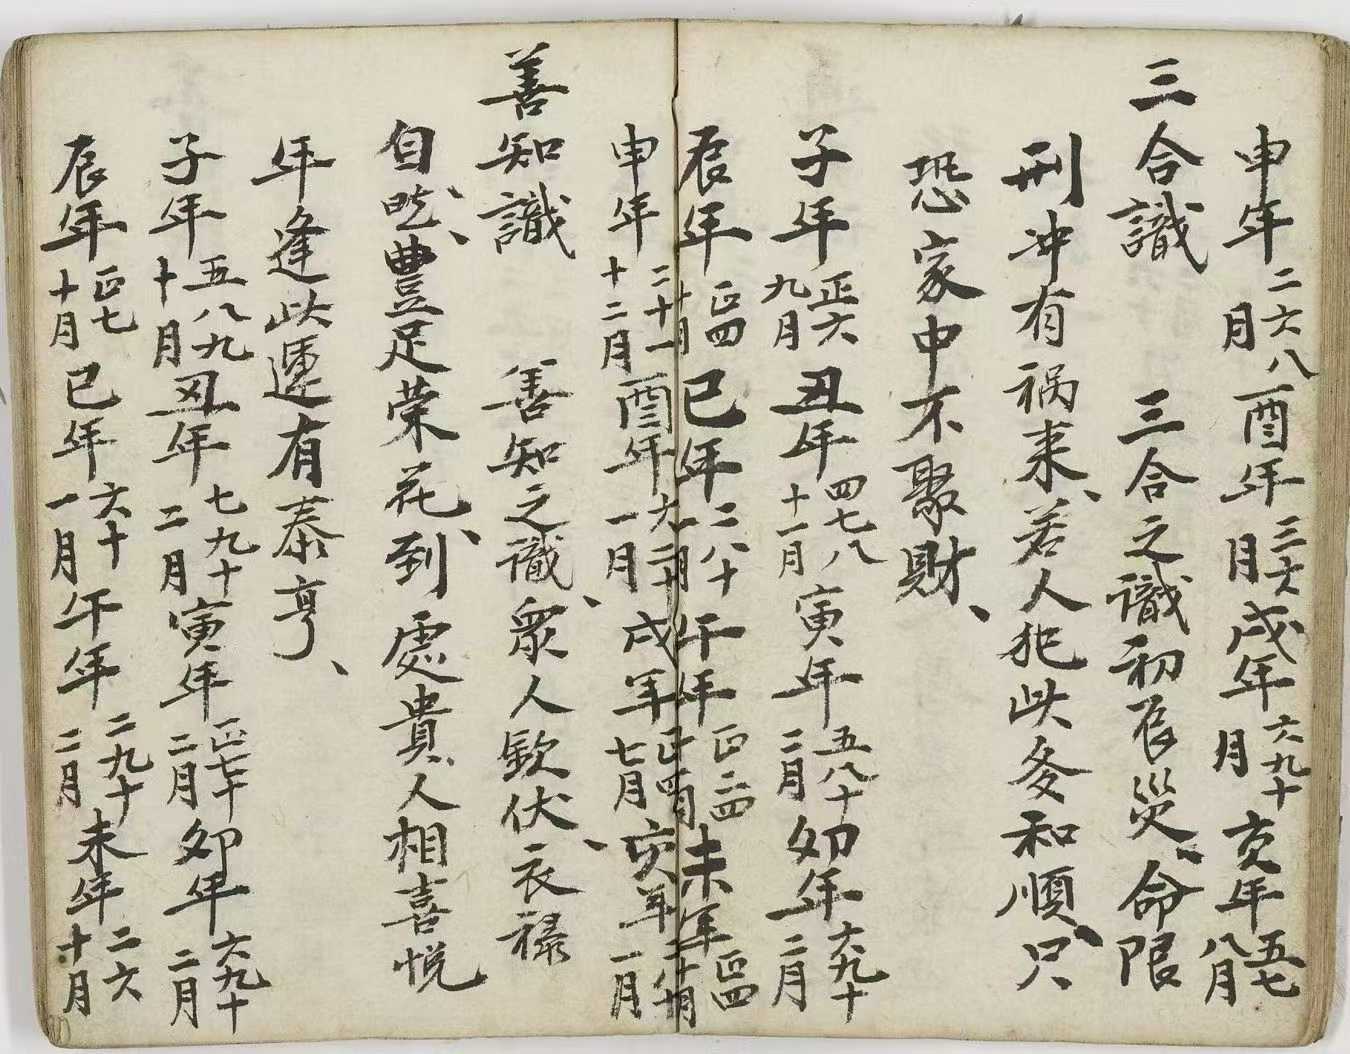 申年二六八月酉年三六月戌年六九十月亥年五七八月
三合識　三合之識初辰災、命限
刑冲有禍来、若人犯此多和順、只
恐家中不聚財、
子年正六九月丑年四七八十一月寅年五八十二月卯年六九十二月
辰年正四月巳年二八十月午年正二四未年正四
申年二十一十二月酉年六一月戌年正四七月亥年一月
善知識　善知之識、衆人欽伏、衣禄
自然、豊足荣花、到處貴人相喜悦
年逢此運有泰亨、
子年五八九十月丑年七九十二月寅年正七十二月卯年六九十二月
辰年正七十月巳年六十一月午年二九十二月未年二六十月